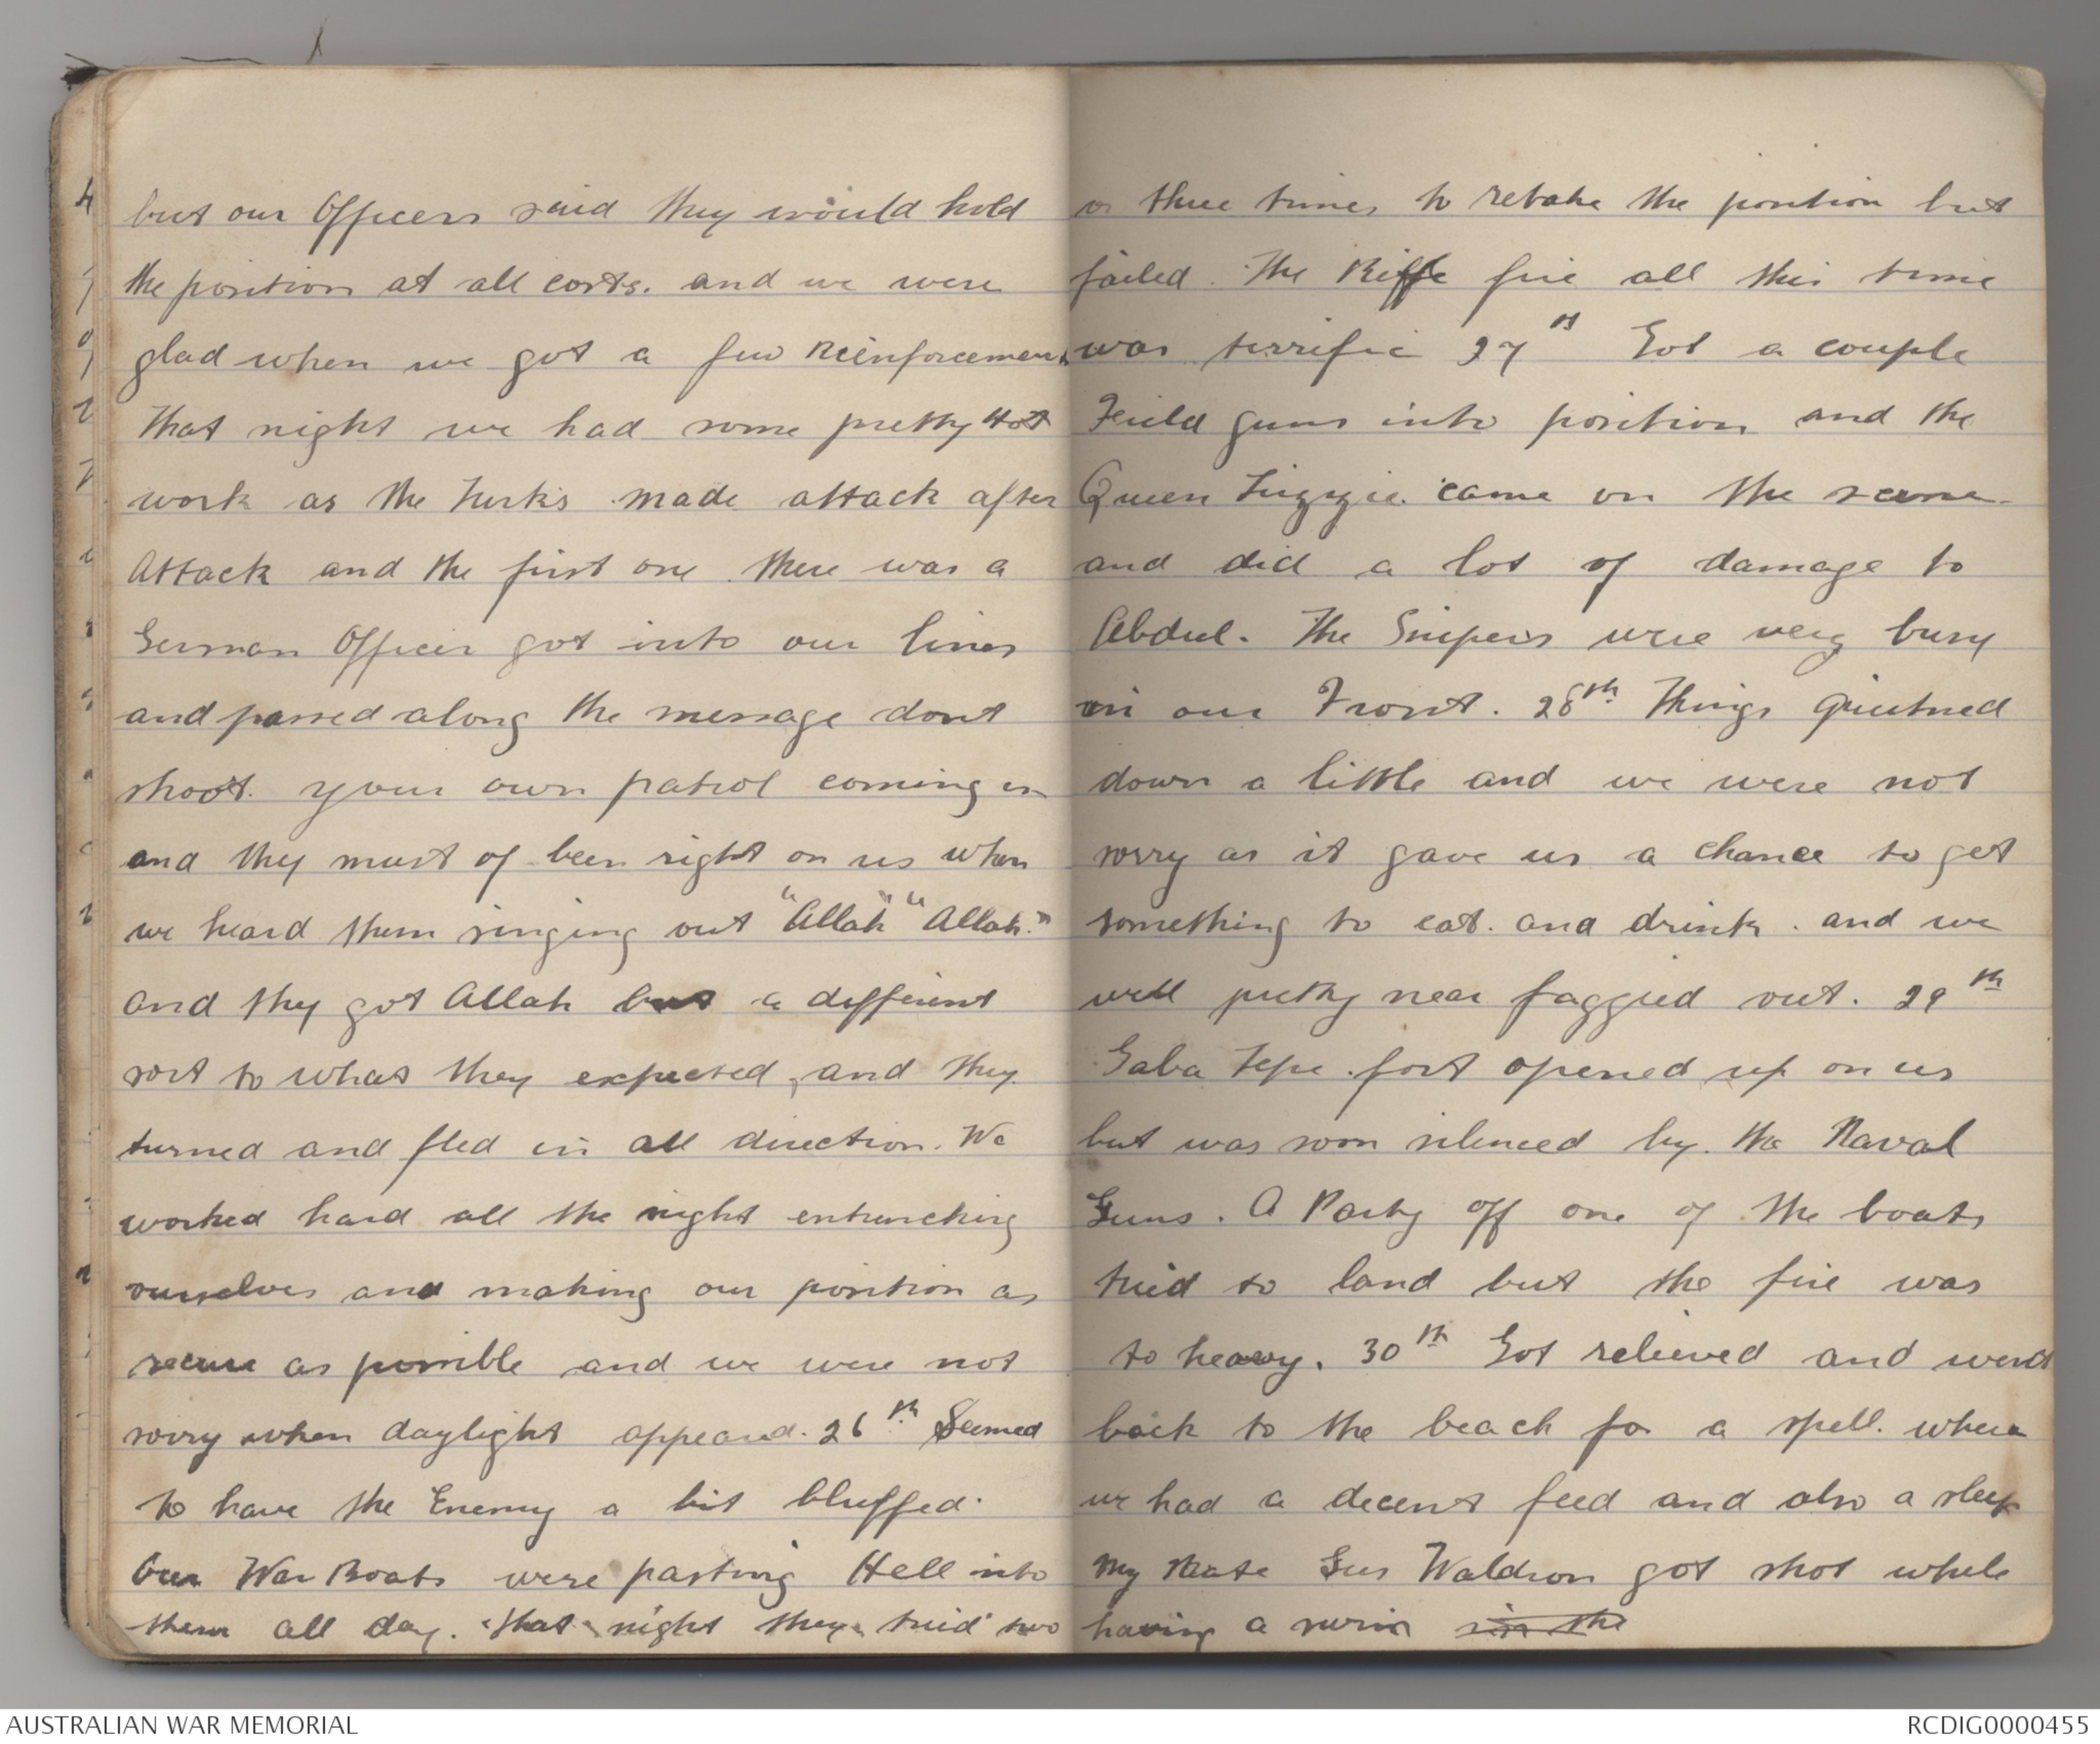 but our Officers said they would hold
the position at all costs. and we were
glad when we got a few Reinforcements
That night we had some pretty Hot
work as the Turks made attack after
Attack and the first one there was a
German Officer got into our lines
and passed along the message dont
shoot. your own patrol coming in
and they must of been right on us when
we heard them singing out "Allah" "Allah."
and they got Allah but a different
sort to what they expected, and they
turned and fled in all direction. We
worked hard all the night entrenching
ourselves and making our position as
secure as possible and we were not
sorry when daylight appeared. 26th. Seemed
to have the Enemy a bit bluffed.
Our War Boats were pasting Hell into
them all day. that night they tried two
or three times to retake the position but
failed. The Riffle fire all this time
was terrific 27th Got a couple
Feild guns into position and the
Queen Lizzie came on the scene
and did a lot of damage to
Abdul. The Snipers were very busy
in our Front. 28th. Things Quietned
down a little and we were not
sorry as it gave us a chance to get
something to eat. and drink. and we
well pretty near faggied out. 29th
Gaba Tepe fort opened up on us
but was soon silenced by the Naval
Guns. A Party off one of the boats
tried to land but the fire was
to heavy. 30th Got relieved and went
back to the beach for a spell. where
we had a decent feed and also a sleep
My Mate Gus Waldron got shot while
having a swim in the
AUSTRALIAN WAR MEMORIAL
RCDIG0000455